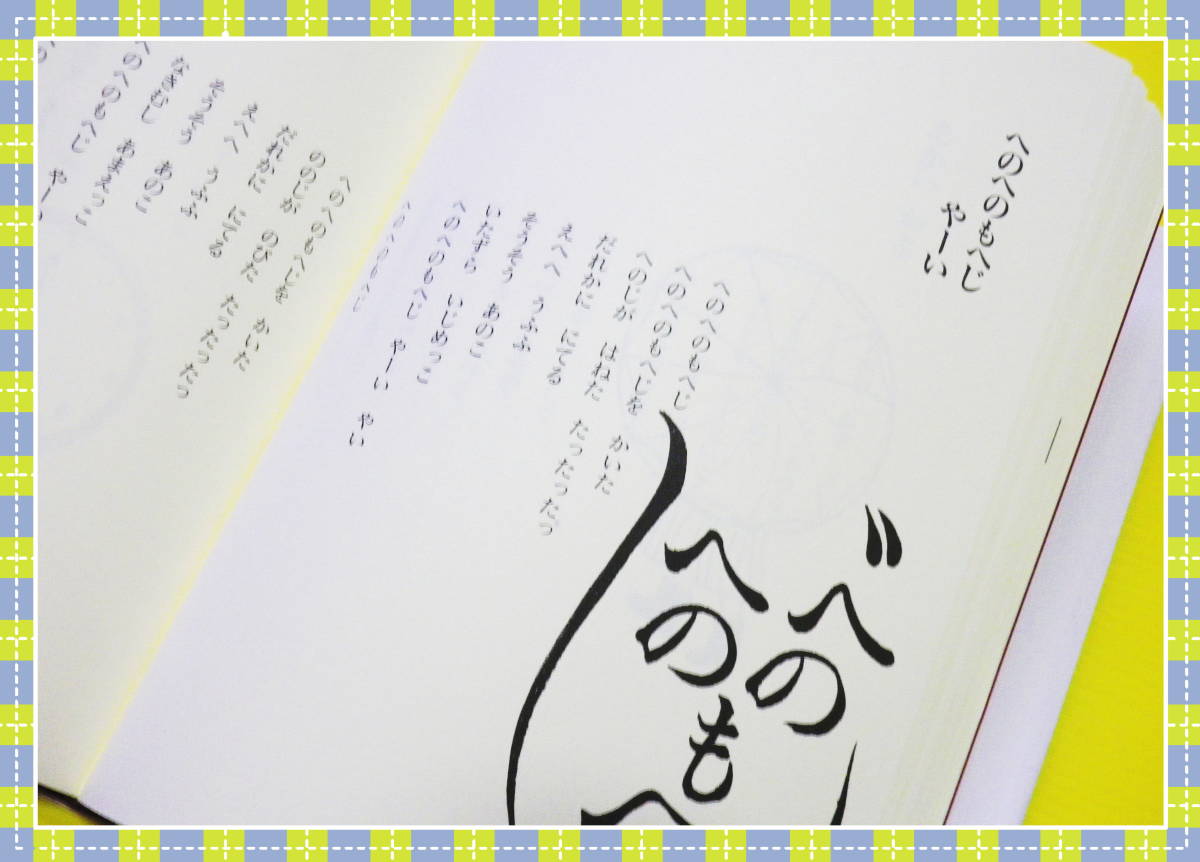 へのへのもへじ
やーい
へのへのもへじ
へのへのもへじを　かいた
へのじが　はねた　たったったっ
だれかに　にてる
えへへ　うふふ
そうそう　あのこ
いたずら　いじめっこ
へのへのもへじ　やーい　やい
へのへのもへじ
へのへのもへじを　かいた
ののじが　のびた　たったったっ
だれかに　にてる
えへへ　うふふ
そうそう　あのこ
なきむし　あまえっこ
へのへのもへじ　やーい
へのへのもへ